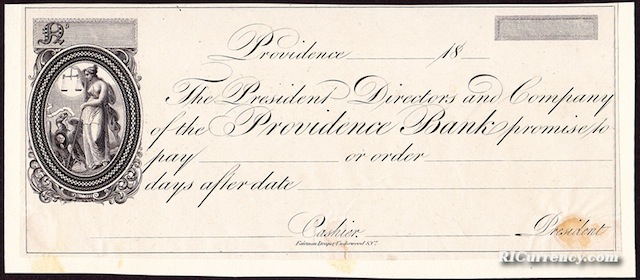 No.
Providence 18
The President Directors and Company
of the Providence Bank promise to
pay or order
days after date
Cashier. President
Fairman Draper Underwood & Co.
RICurrency.com